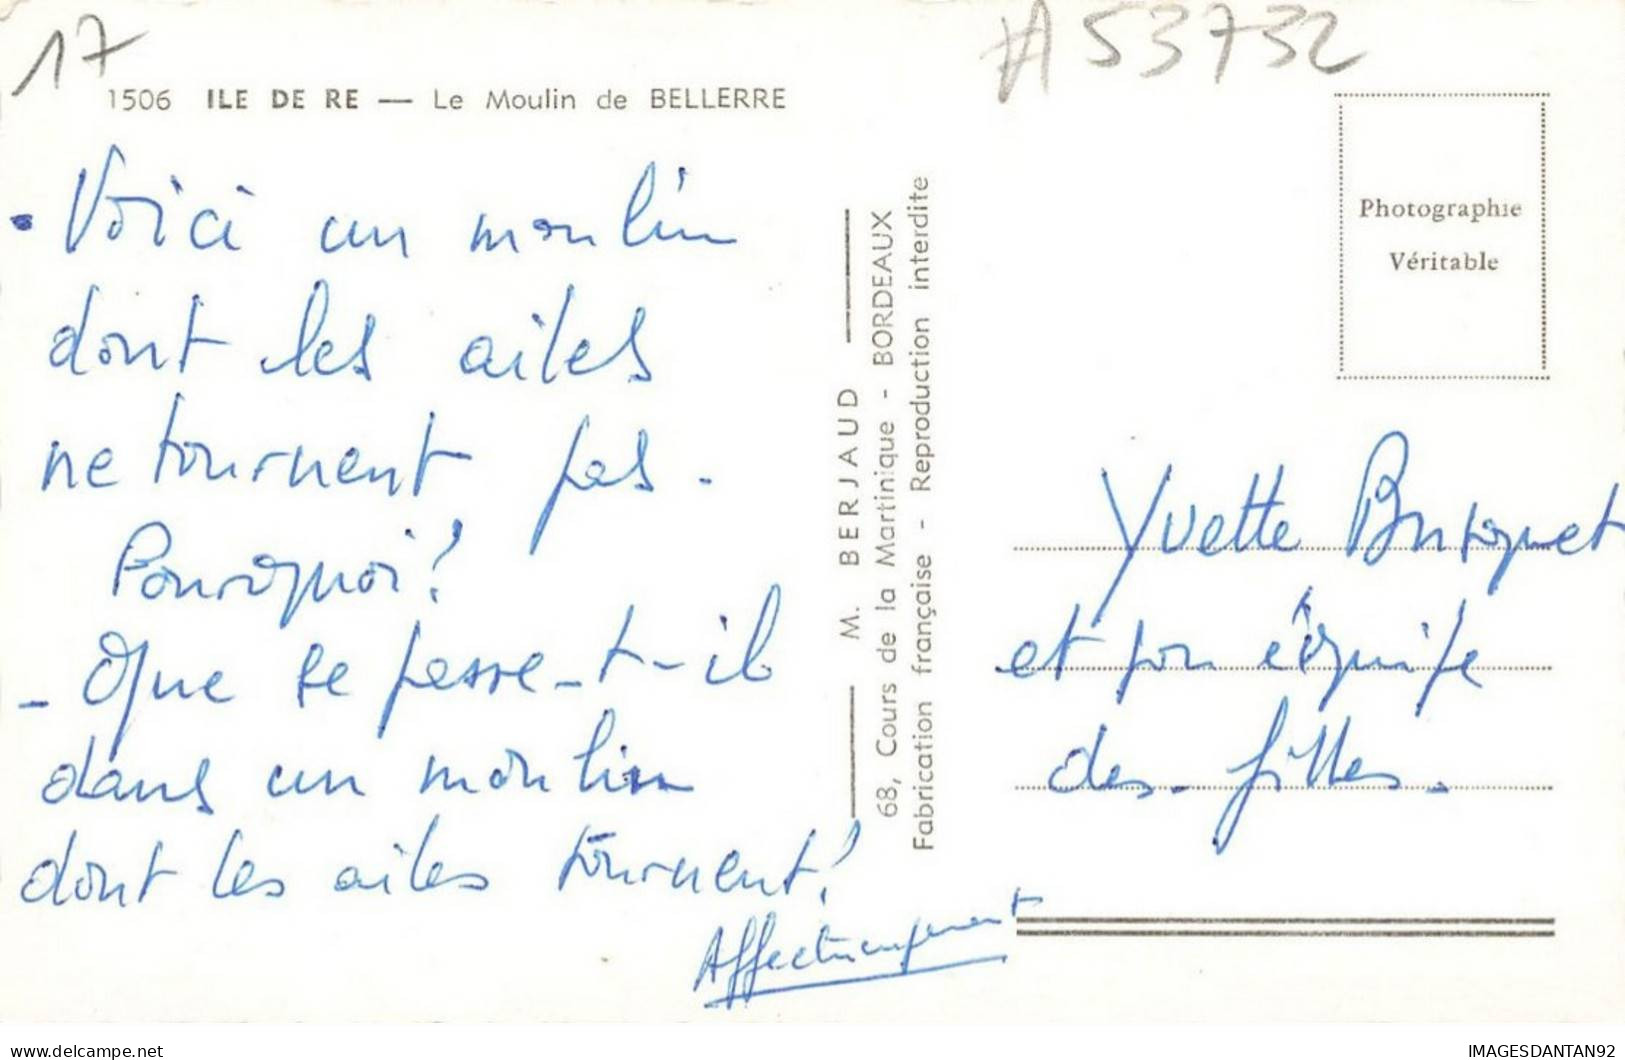 17
#A53732
1506 ILE DE RE — Le Moulin de BELLERRE
• Voici un moulin
dont les ailes
ne tournent pas -
Pourquoi?
- Que se passe-t-il
dans un moulin
dont les ailes tournent?
Affectueusement
M. BERJAUD
68, Cours de la Martinique - BORDEAUX
Fabrication française - Reproduction interdite
Photographie
Véritable
Yvette
et son équipe
des filles -
delcampe.net
IMAGESDANTAN92